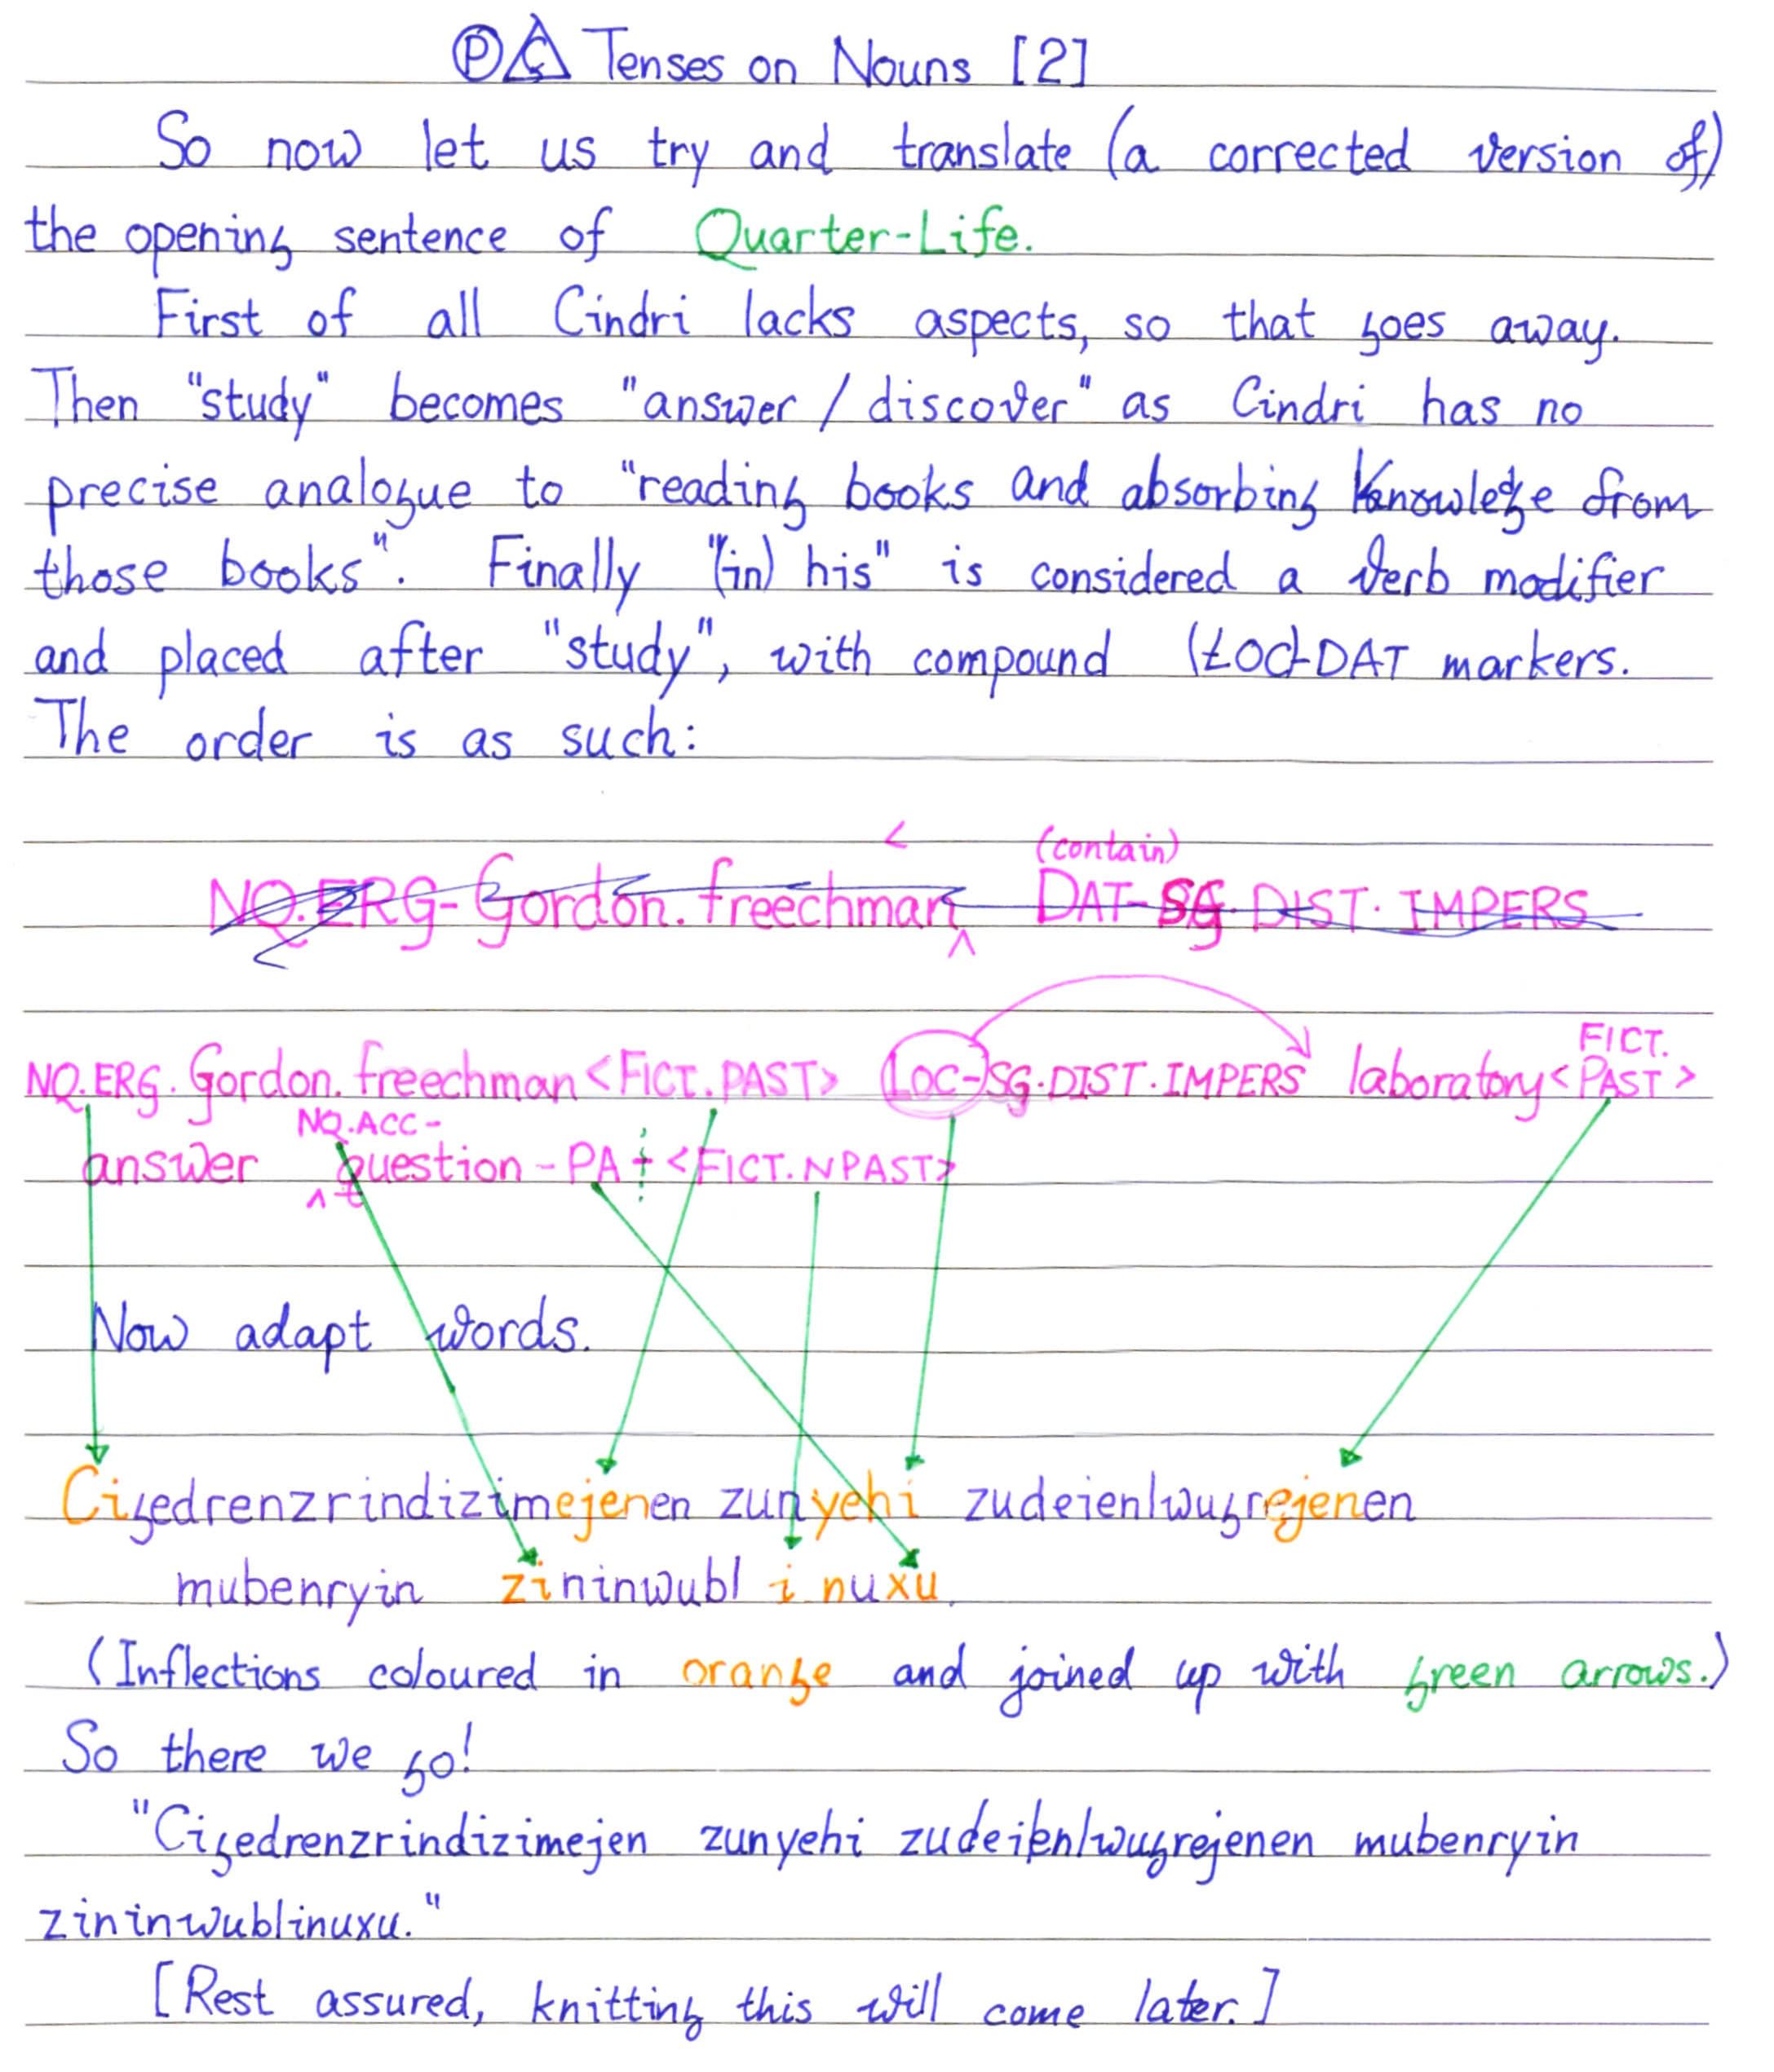 Ⓟ Ç Tenses on Nouns [2]
So now let us try and translate (a corrected version of)
the opening sentence of Quarter-Life.
First of all Cindri lacks aspects, so that goes away.
Then "study" becomes "answer / discover" as Cindri has no
precise analogue to "reading books and absorbing knowlege from
those books". Finally "(in) his" is considered a verb modifier
and placed after "study", with compound (LOC)-DAT markers.
The order is as such:
(contain)
NQ.ERG-Gordon.freechman DAT-SG.DIST.IMPERS
FICT.
NQ.ERG.Gordon.freechman<FICT.PAST> LOC-SG.DIST.IMPERS laboratory<PAST>
NQ.ACC-
answer question-PA+<FICT.NPAST>
Now adapt words.
Cigedrenzrindizimejenen zunyehi zudeienlwugrejenen
mubenryin zininwubl i nuxu.
(Inflections coloured in orange and joined up with green arrows.)
So there we go!
"Cigedrenzrindizimejen zunyehi zudeienlwugrejenen mubenryin
zininwublinuxu."
[Rest assured, knitting this will come later.]